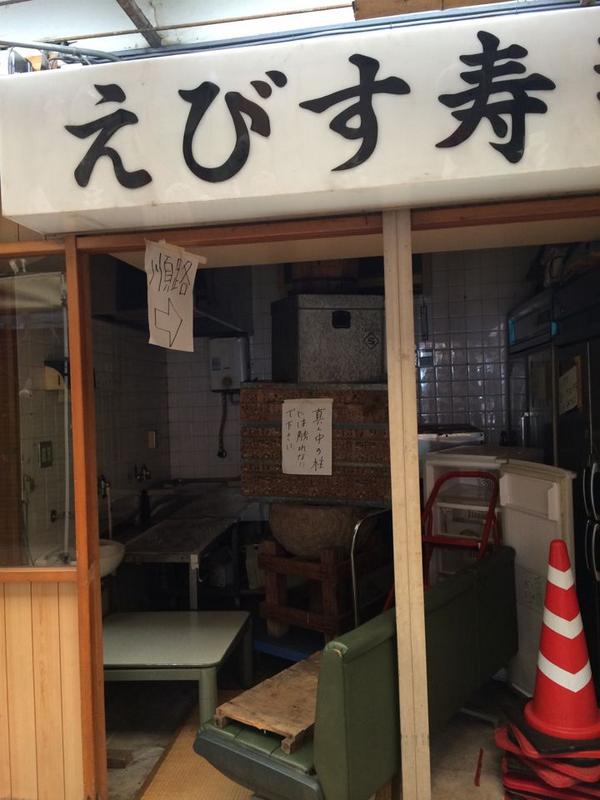 えびす寿
順路
真ん中の柱
には触れない
で下さい